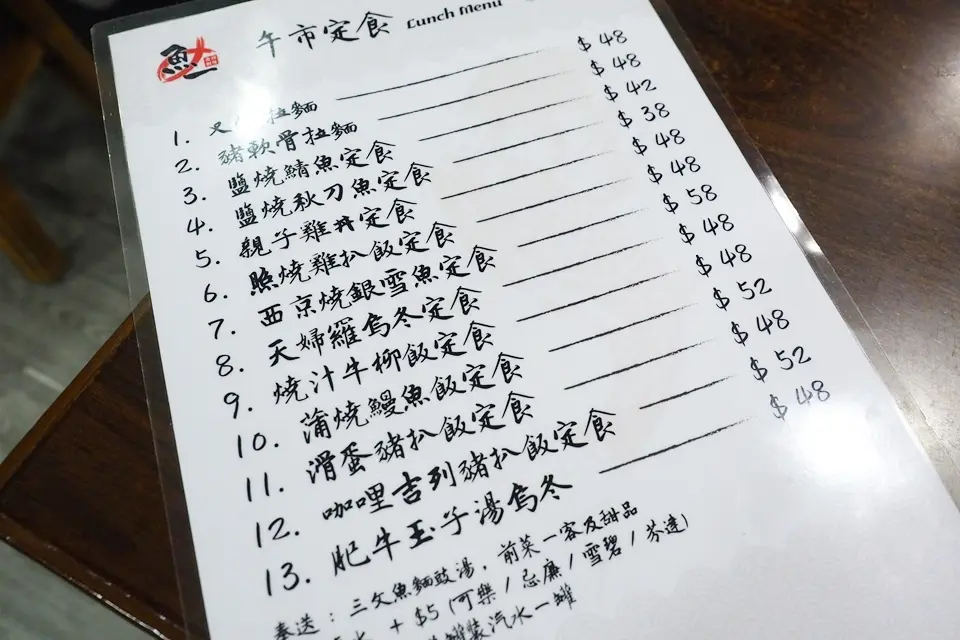 午市定食 Lunch Menu
1. 叉 拉麵 $48
2. 豬軟骨拉麵 $48
3. 鹽燒鯖魚定食 $42
4. 鹽燒秋刀魚定食 $38
5. 親子雞丼定食 $48
6. 照燒雞扒飯定食 $48
7. 西京燒銀雪魚定食 $58
8. 天婦羅烏冬定食 $48
9. 燒汁牛柳飯定食 $48
10. 蒲燒鰻魚飯定食 $52
11. 滑蛋豬扒飯定食 $48
12. 咖哩吉列豬扒飯定食 $52
13. 肥牛玉子湯烏冬 $48
奉送：三文魚麵豉湯，前菜一客及甜品
水 + $5 (可樂 / 忌廉 / 雪碧 / 芬達)
罐裝汽水一罐